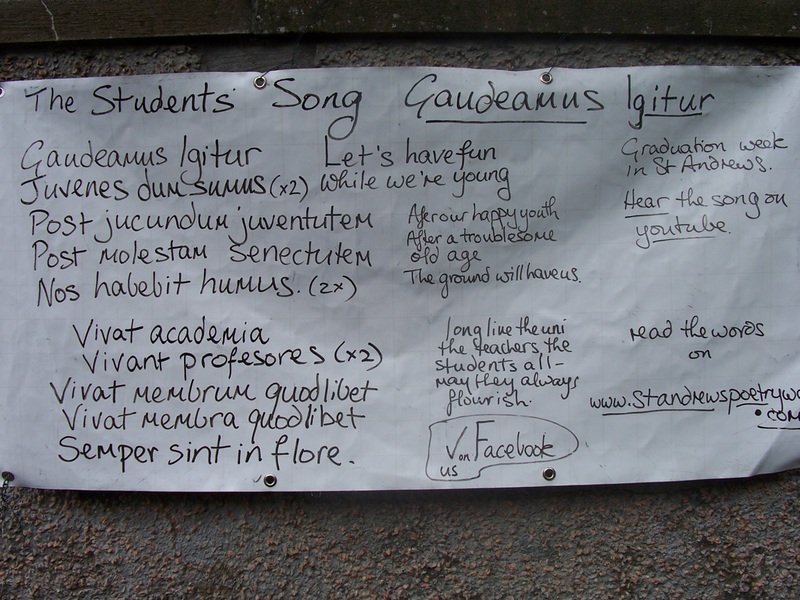 The Students' Song Gaudeamus Igitur
Gaudeamus Igitur
Juvenes dum sumus (x2)
Post jucundum juventutem
Post molestam senectutem
Nos habebit humus. (2x)
Vivat academia
Vivant profesores (x2)
Vivat membrum quodlibet
Vivat membra quodlibet
Semper sint in flore.
Let's have fun
while we're young
After our happy youth
After a troublesome
old age
The ground will have us.
long live the uni
the teachers the
students all-
may they always
flourish.
V on Facebook
us
Graduation week
in St Andrews.
Hear the song on
youtube.
read the words
on
www.standrewspoetrywo
.com